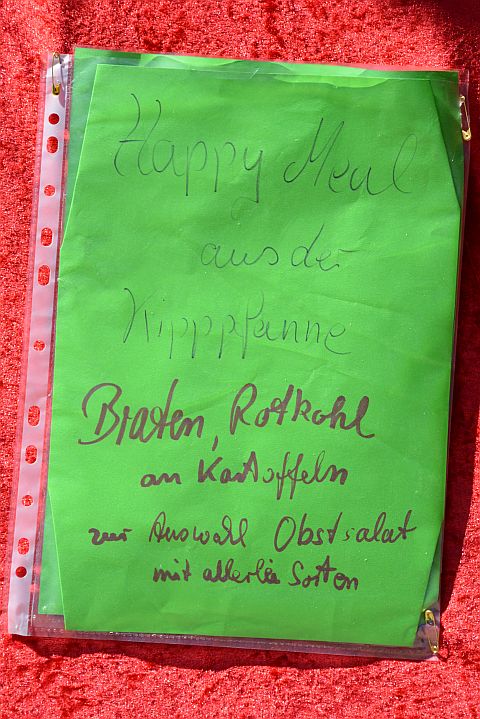 Happy Meal
aus der
Kipppfanne
Braten, Rotkohl
an Kartoffeln
zur Auswahl Obstsalat
mit allerlei Sorten